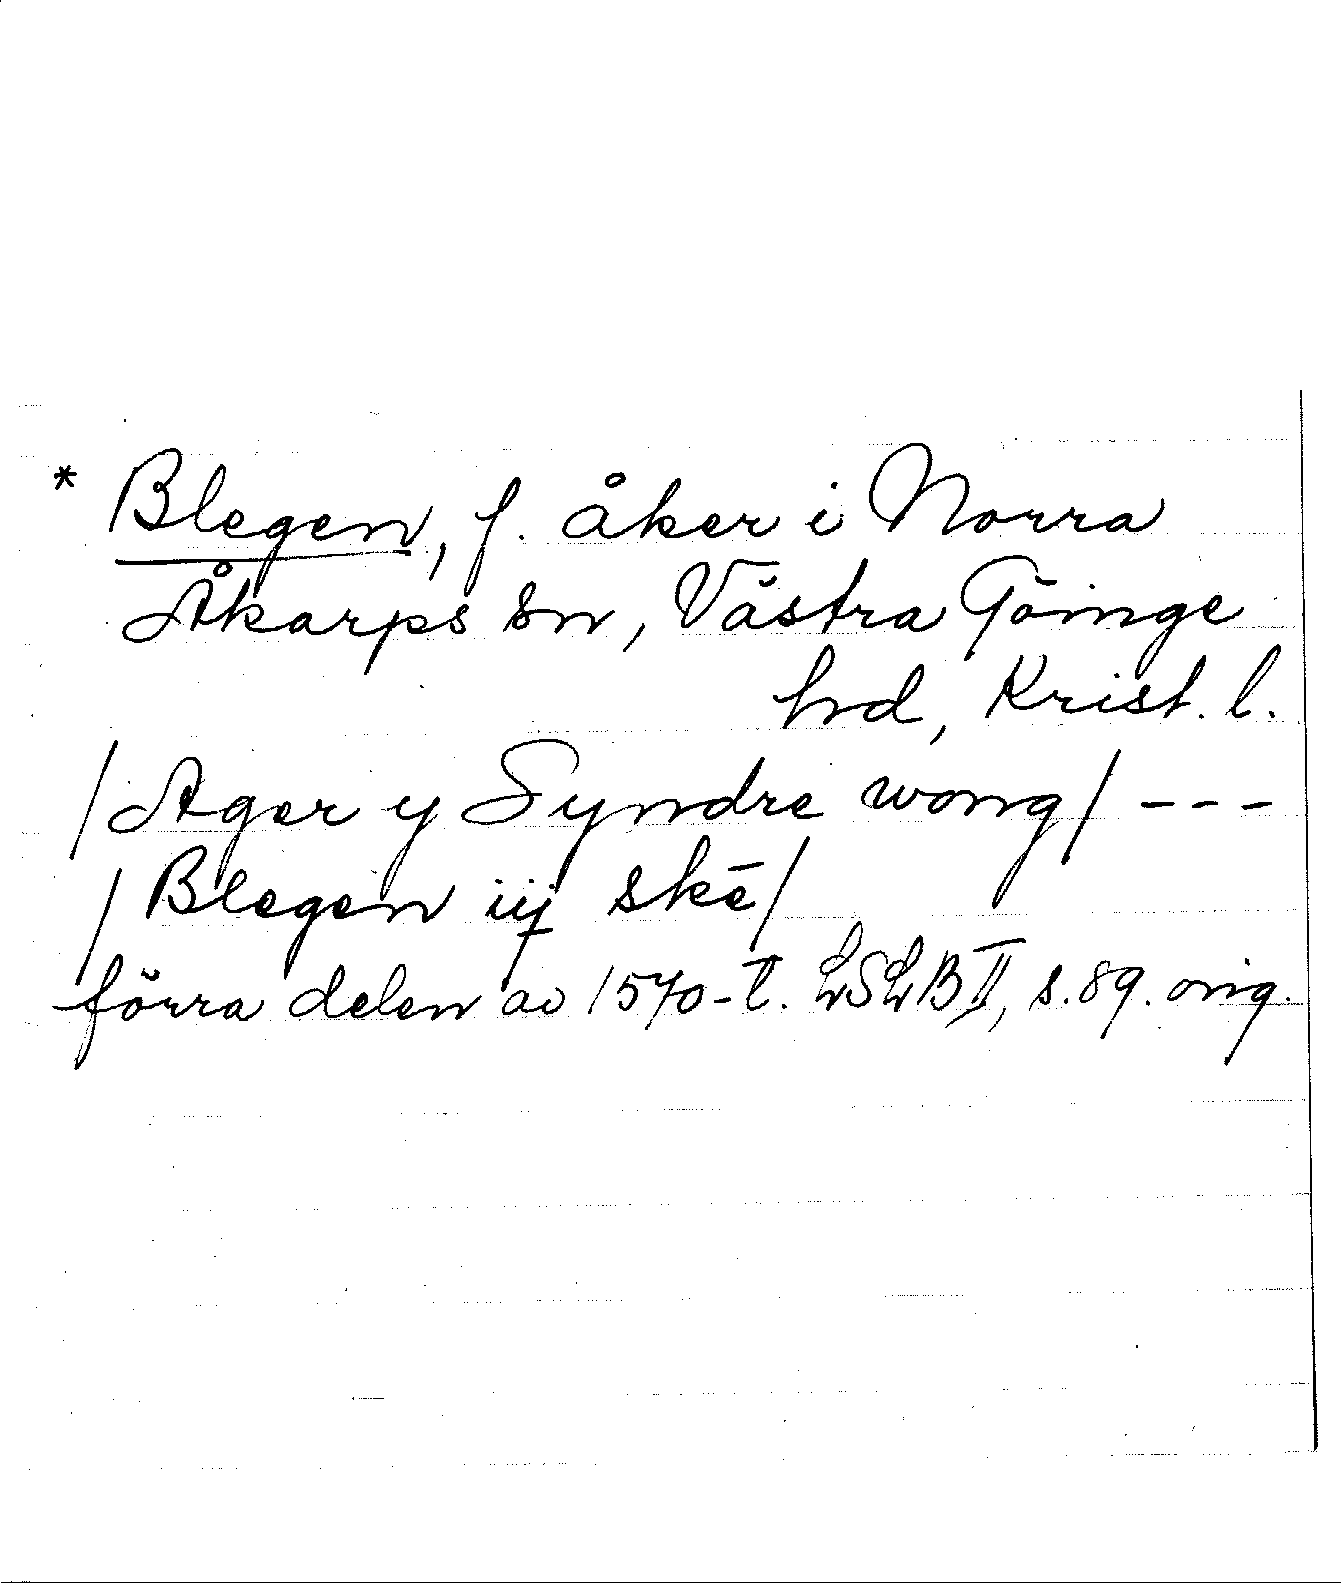 * Blegen, f. åker i Norra
Åkarps sn, Västra Göinge
hrd, Krist. l.
/Ager y Syndre wong/ ---
/Blegen iij skē/
förra delen av 1570-t. LSLB II, s. 89. orig.